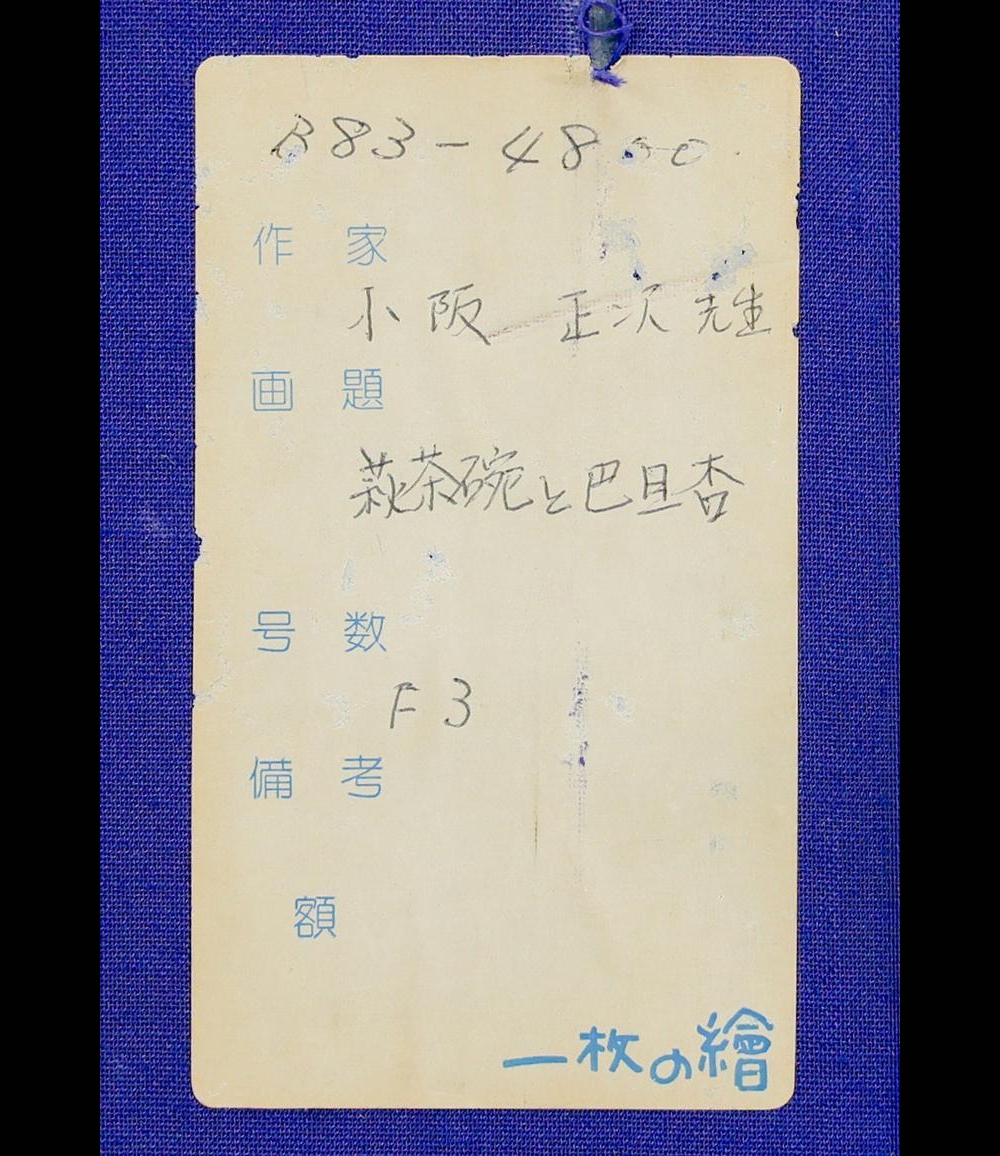 B83-4800
作家
小阪 正次 先生
画題
萩茶碗と巴旦杏
号数
F3
備考
額
一枚の繪